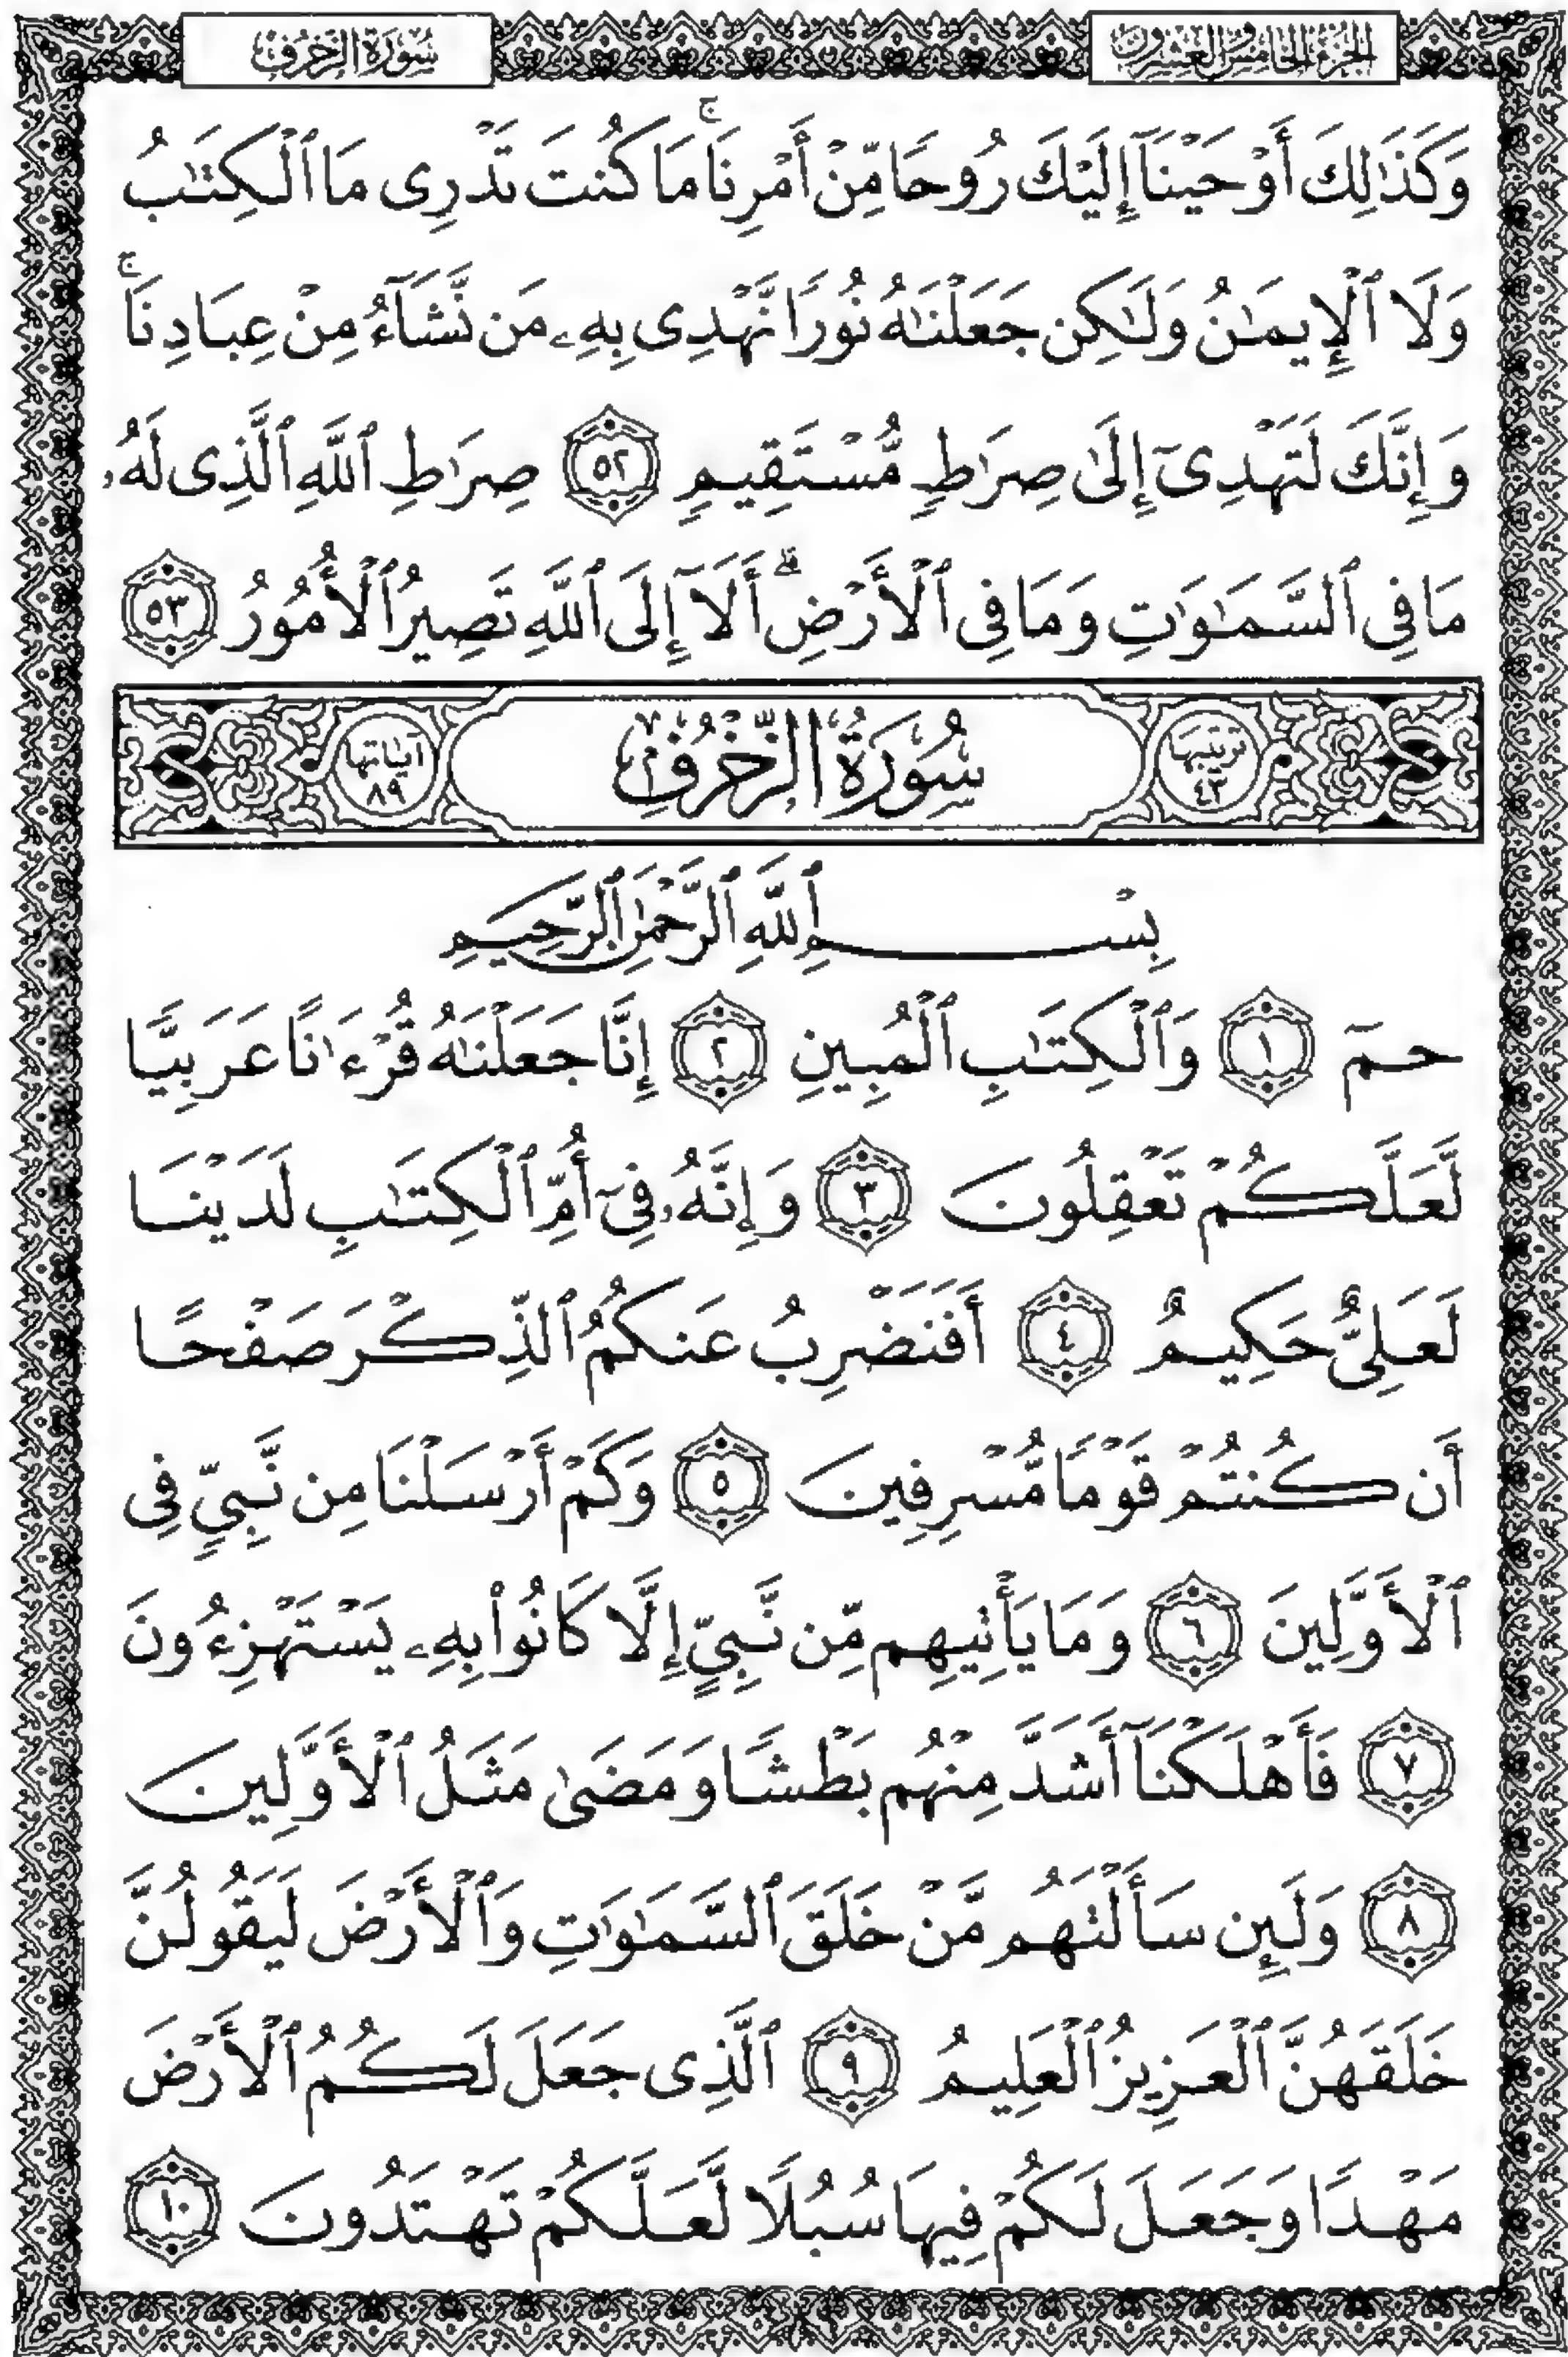 الجزء الخامس والعشرون
سُورَةُ الزُّخْرُفِ
وَكَذَٰلِكَ أَوْحَيْنَآ إِلَيْكَ رُوحًا مِّنْ أَمْرِنَا ۚ مَا كُنتَ تَدْرِى مَا ٱلْكِتَٰبُ
وَلَا ٱلْإِيمَٰنُ وَلَٰكِن جَعَلْنَٰهُ نُورًا نَّهْدِى بِهِۦ مَن نَّشَآءُ مِنْ عِبَادِنَا ۚ
وَإِنَّكَ لَتَهْدِىٓ إِلَىٰ صِرَٰطٍ مُّسْتَقِيمٍ ٥٢ صِرَٰطِ ٱللَّهِ ٱلَّذِى لَهُۥ
مَا فِى ٱلسَّمَٰوَٰتِ وَمَا فِى ٱلْأَرْضِ ۗ أَلَآ إِلَى ٱللَّهِ تَصِيرُ ٱلْأُمُورُ ٥٣
ترتيبها ٤٣ سُورَةُ الزُّخْرُفِ آياتها ٨٩
بِسْمِ ٱللَّهِ ٱلرَّحْمَٰنِ ٱلرَّحِيمِ
حمٓ ١ وَٱلْكِتَٰبِ ٱلْمُبِينِ ٢ إِنَّا جَعَلْنَٰهُ قُرْءَٰنًا عَرَبِيًّا
لَّعَلَّكُمْ تَعْقِلُونَ ٣ وَإِنَّهُۥ فِىٓ أُمِّ ٱلْكِتَٰبِ لَدَيْنَا
لَعَلِىٌّ حَكِيمٌ ٤ أَفَنَضْرِبُ عَنكُمُ ٱلذِّكْرَ صَفْحًا
أَن كُنتُمْ قَوْمًا مُّسْرِفِينَ ٥ وَكَمْ أَرْسَلْنَا مِن نَّبِىٍّ فِى
ٱلْأَوَّلِينَ ٦ وَمَا يَأْتِيهِم مِّن نَّبِىٍّ إِلَّا كَانُوا۟ بِهِۦ يَسْتَهْزِءُونَ
٧ فَأَهْلَكْنَآ أَشَدَّ مِنْهُم بَطْشًا وَمَضَىٰ مَثَلُ ٱلْأَوَّلِينَ
٨ وَلَئِن سَأَلْتَهُم مَّنْ خَلَقَ ٱلسَّمَٰوَٰتِ وَٱلْأَرْضَ لَيَقُولُنَّ
خَلَقَهُنَّ ٱلْعَزِيزُ ٱلْعَلِيمُ ٩ ٱلَّذِى جَعَلَ لَكُمُ ٱلْأَرْضَ
مَهْدًا وَجَعَلَ لَكُمْ فِيهَا سُبُلًا لَّعَلَّكُمْ تَهْتَدُونَ ١٠